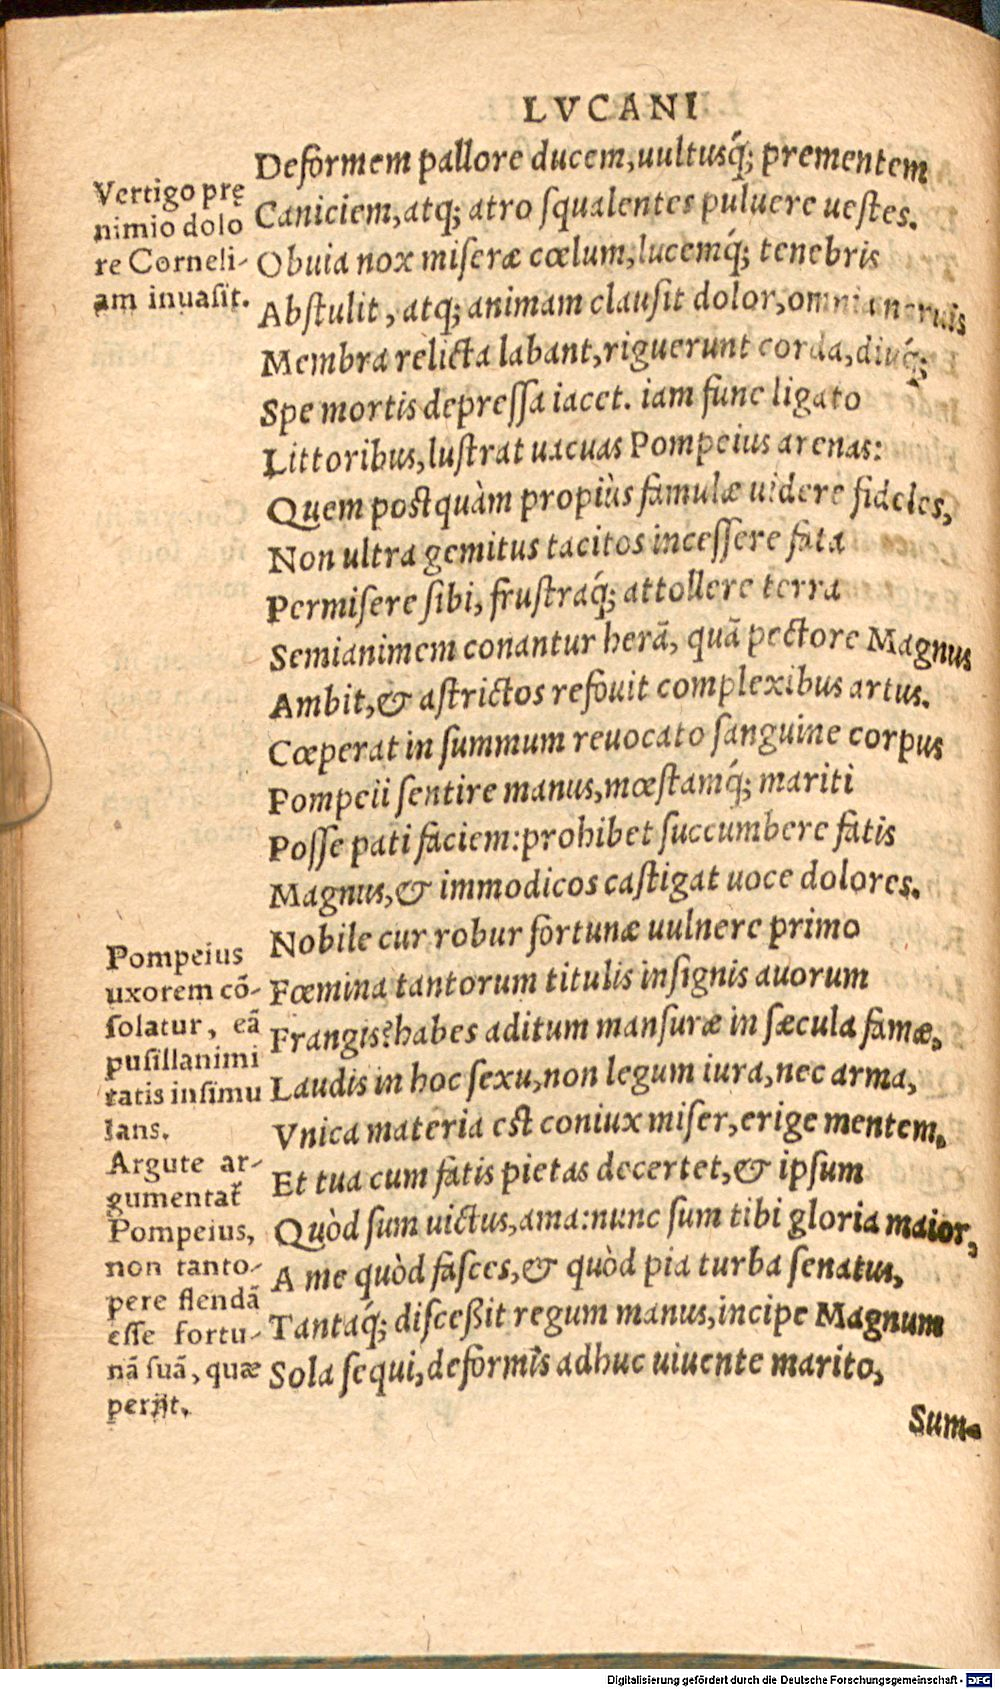 LVCANI
Deformem pallore ducem, uultusq́; prementem
Caniciem, atq; atro squalentes puluere uestes.
Obuia nox miseræ cœlum, lucemq́; tenebris
Abstulit, atq; animam clausit dolor, omnia neruis
Membra relicta labant, riguerunt corda, diuq́;
Spe mortis depressa iacet. iam fune ligato
Littoribus, lustrat uacuas Pompeius arenas:
Quem postquàm propiùs famulæ uidere fideles,
Non ultra gemitus tacitos incessere fata
Permisere sibi, frustraq́; attollere terra
Semianimem conantur herã, quã pectore Magnus
Ambit, & astrictos refouit complexibus artus.
Cœperat in summum reuocato sanguine corpus
Pompeii sentire manus, mœstamq́; mariti
Posse pati faciem: prohibet succumbere fatis
Magnus, & immodicos castigat uoce dolores.
Nobile cur robur fortunæ uulnere primo
Fœmina tantorum titulis insignis auorum
Frangis? habes aditum mansuræ in sæcula famæ,
Laudis in hoc sexu, non legum iura, nec arma,
Vnica materia est coniux miser, erige mentem,
Et tua cum fatis pietas decertet, & ipsum
Quòd sum uictus, ama: nunc sum tibi gloria maior,
A me quòd fasces, & quòd pia turba senatus,
Tantaq́; disceßit regum manus, incipe Magnum
Sola sequi, deformis adhuc uiuente marito,
Sum-
Vertigo prę
nimio dolo
re Corneli-
am inuasit.
Pompeius
uxorem cõ-
solatur, eã
pusillanimi
tatis insimu
lans.
Argute ar-
gumentat̃
Pompeius,
non tanto-
pere flendã
esse fortu-
nã suã, quæ
perijt.
Digitalisierung gefördert durch die Deutsche Forschungsgemeinschaft - DFG